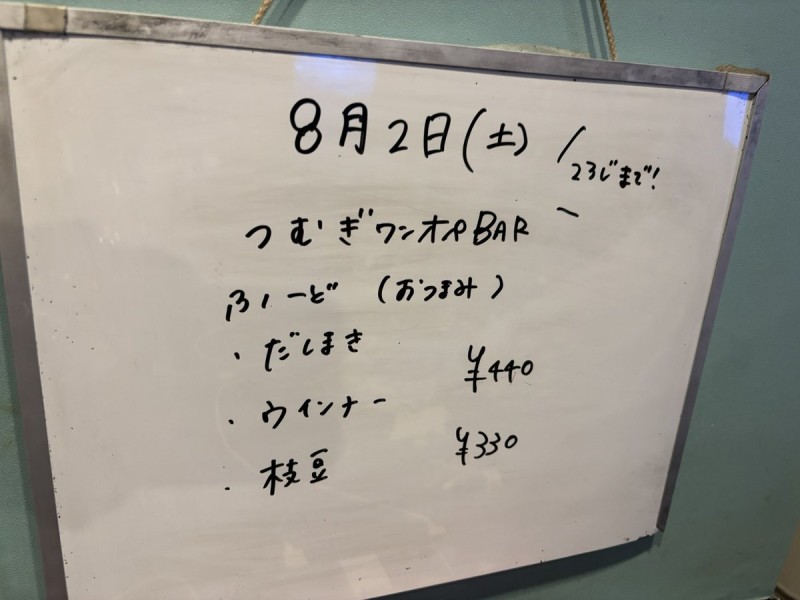 8月2日(土)
23じまで!
つむぎワンオペBAR
ふーど (おつまみ)
・だしまき
¥440
・ウインナー
¥330
・枝豆